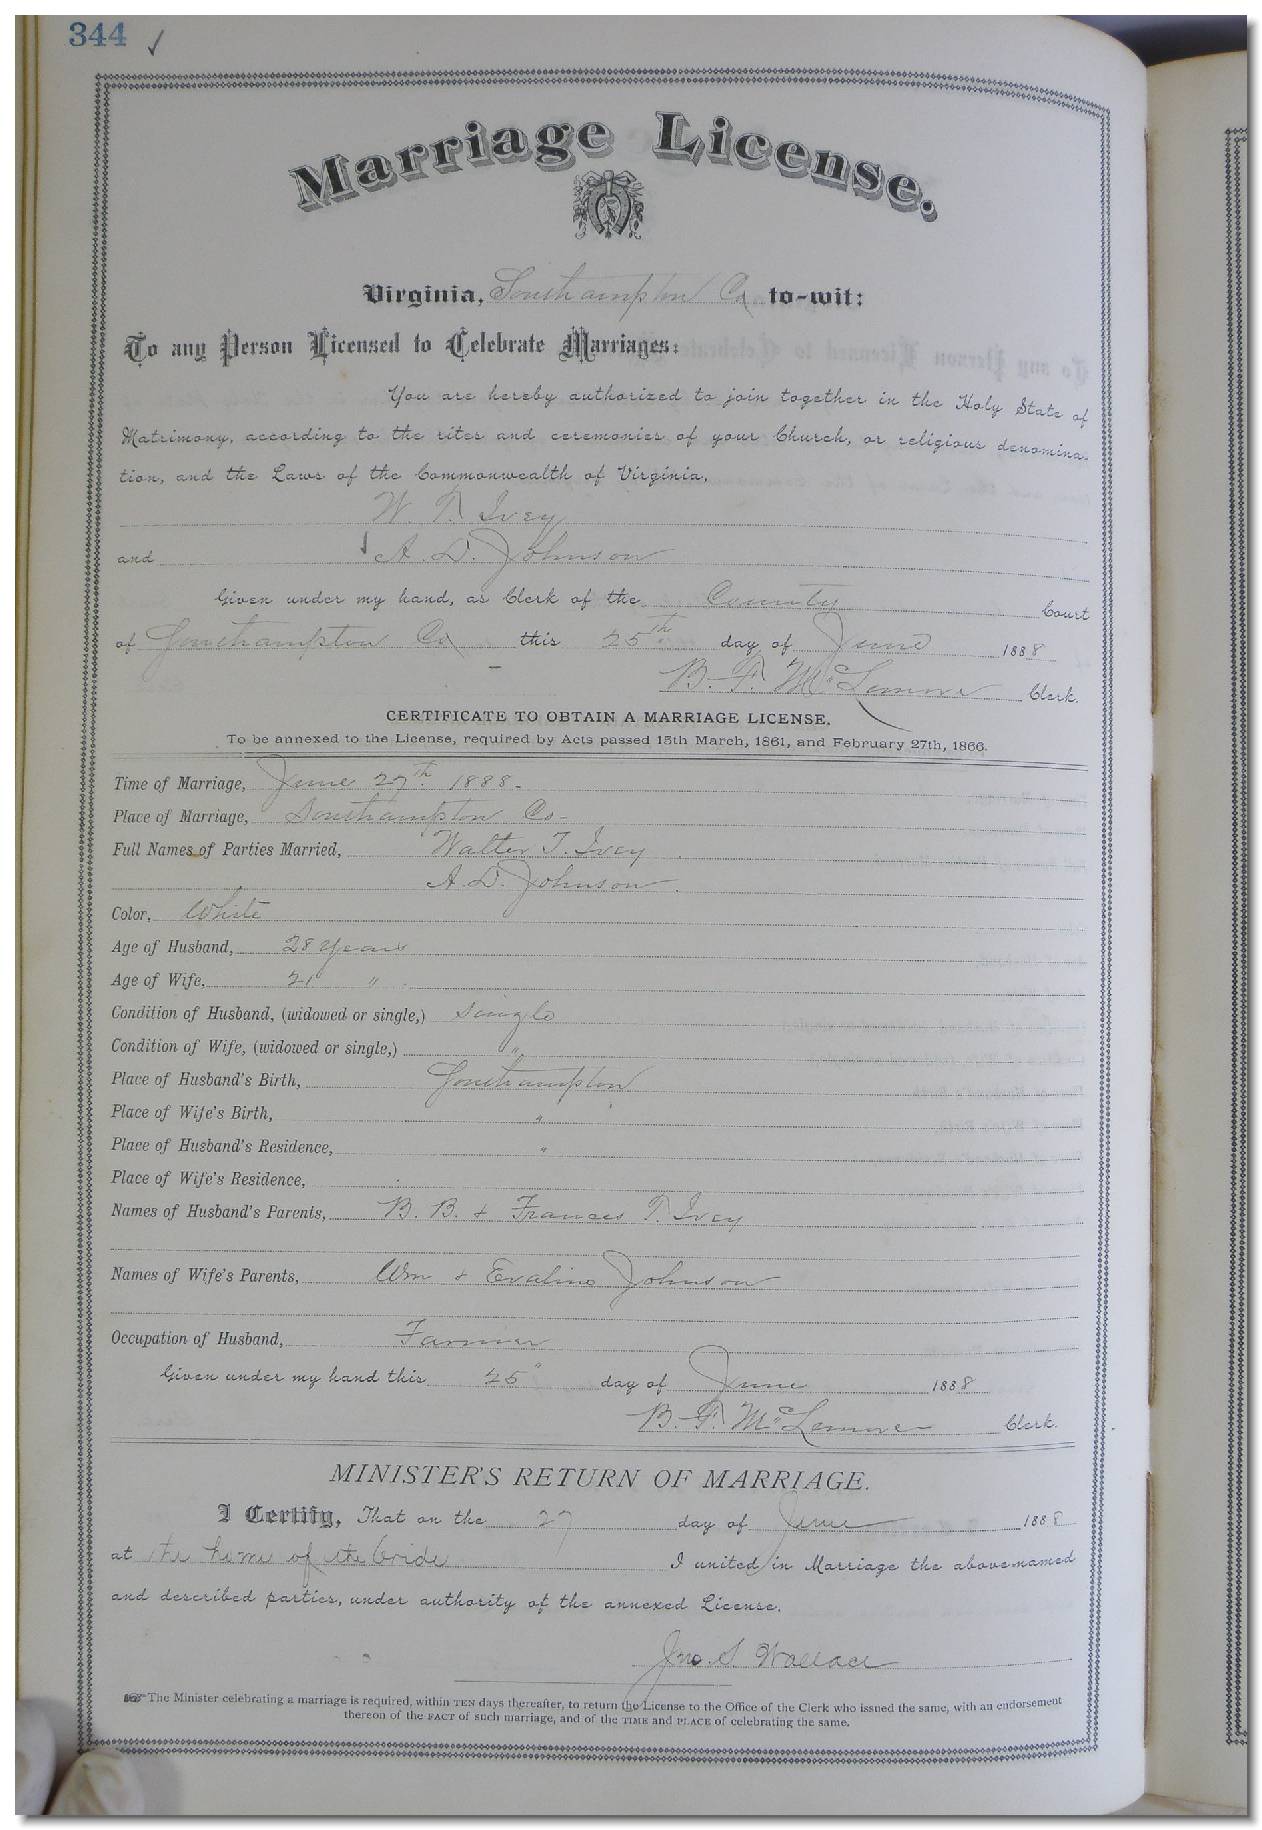 344 ✓
Marriage License.
Virginia, Southampton Co to-wit:
To any Person Licensed to Celebrate Marriages:
You are hereby authorized to join together in the Holy State of
Matrimony, according to the rites and ceremonies of your Church, or religious denomina-
tion, and the Laws of the Commonwealth of Virginia,
W. T. Ivey
and A. D. Johnson
Given under my hand, as Clerk of the County Court
of Southampton Co this 25th day of June 1888
B. F. McLemore Clerk.
CERTIFICATE TO OBTAIN A MARRIAGE LICENSE.
To be annexed to the License, required by Acts passed 15th March, 1861, and February 27th, 1866.
Time of Marriage, June 27th. 1888-
Place of Marriage, Southampton Co-
Full Names of Parties Married, Walter T. Ivey
A. D. Johnson.
Color, White
Age of Husband, 28 years
Age of Wife, 21 "
Condition of Husband, (widowed or single,) Single
Condition of Wife, (widowed or single,) "
Place of Husband's Birth, Southampton
Place of Wife's Birth, "
Place of Husband's Residence, "
Place of Wife's Residence,
Names of Husband's Parents, B. B. & Frances T. Ivey
Names of Wife's Parents, Wm & Evaline Johnson
Occupation of Husband, Farmer
Given under my hand this 25" day of June 1888
B. F. McLemore Clerk.
MINISTER'S RETURN OF MARRIAGE.
I Certify, That on the 27 day of June 1888
at the home of the bride I united in Marriage the above named
and described parties, under authority of the annexed License.
Jno. S. Wallace
☞ The Minister celebrating a marriage is required, within TEN days thereafter, to return the License to the Office of the Clerk who issued the same, with an endorsement
thereon of the FACT of such marriage, and of the TIME and PLACE of celebrating the same.